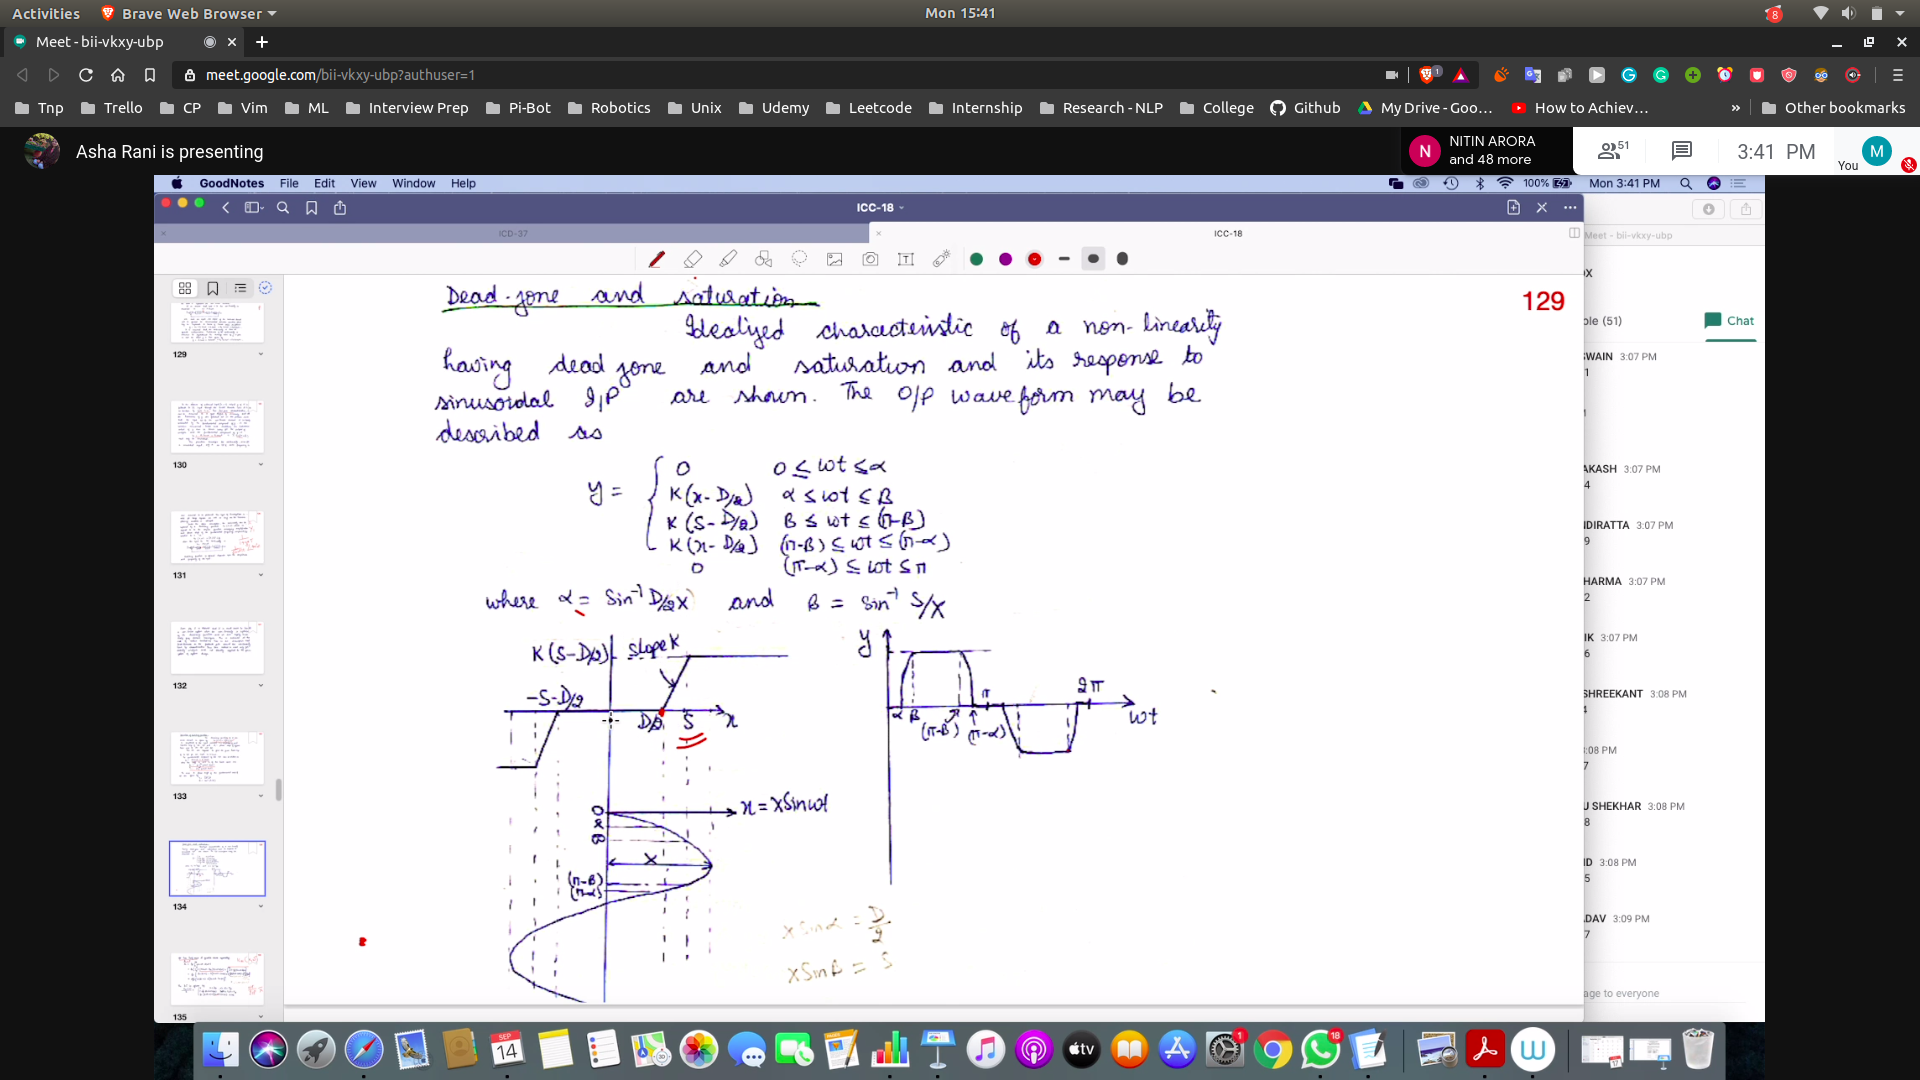 Activities
Brave Web Browser
Mon 15:41
8
Meet - bii-vkxy-ubp
meet.google.com/bii-vkxy-ubp?authuser=1
1
Tnp
Trello
CP
Vim
ML
Interview Prep
Pi-Bot
Robotics
Unix
Udemy
Leetcode
Internship
Research - NLP
College
Github
My Drive - Goo...
How to Achiev...
»
Other bookmarks
Asha Rani is presenting
N
NITIN ARORA
and 48 more
51
3:41 PM
You
M
GoodNotes File Edit View Window Help
100%
Mon 3:41 PM
ICC-18
ICD-37
ICC-18
Meet - bii-vkxy-ubp
129
130
131
132
133
134
135
129
Dead-zone and saturation
Idealized characteristic of a non-linearity
having dead zone and saturation and its response to
sinusoidal I/P are shown. The O/P waveform may be
described as
y = { 0 0 ≤ wt ≤ α
K(x-D/2) α ≤ wt ≤ β
K(S-D/2) β ≤ wt ≤ (π-β)
K(x-D/2) (π-β) ≤ wt ≤ (π-α)
0 (π-α) ≤ wt ≤ π
where α = Sin⁻¹ D/2X and β = sin⁻¹ S/X
K(S-D/2) slope K
-S-D/2
D/2 S x
y
α β
(π-β) (π-α)
π
2π
wt
0
α
β
x = X Sin wt
X
(π-β)
(π-α)
X Sin α = D/2
X Sin β = S
ple (51)
Chat
SWAIN 3:07 PM
1
AKASH 3:07 PM
4
NDIRATTA 3:07 PM
9
HARMA 3:07 PM
2
IK 3:07 PM
6
SHREEKANT 3:08 PM
8
:08 PM
7
U SHEKHAR 3:08 PM
8
ID 3:08 PM
5
DAV 3:09 PM
7
age to everyone
SEP
14
tv
1
18